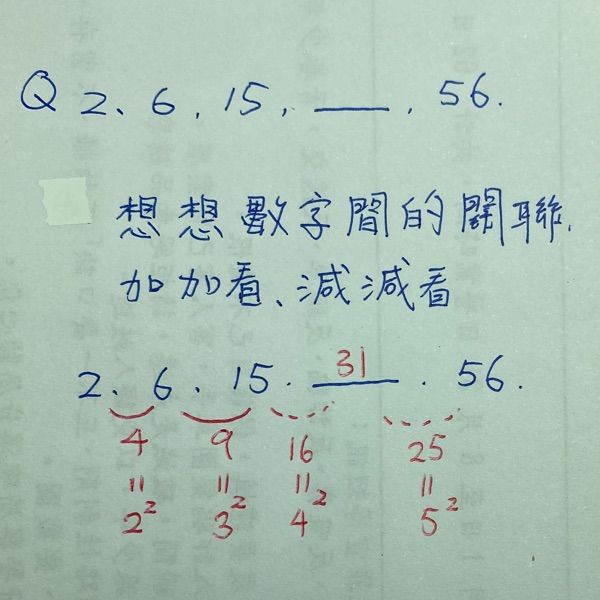 Q 2、6，15，___，56.
想想數字間的關聯.
加加看、減減看
2、6、15．31．56.
4 9 16 25
= = = =
2² 3² 4² 5²